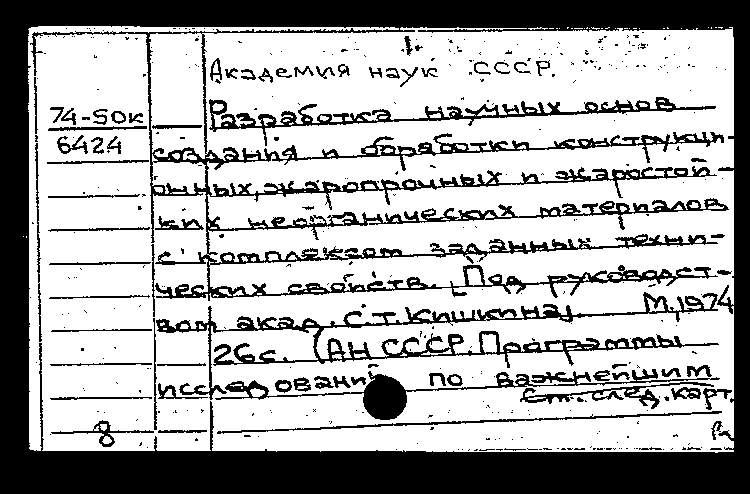 Академия наук СССР.
74-50к Разработка научных основ
6424 создания и обработки конструкци-
онных, жаропрочных и жаростой-
ких неорганических материалов
с комплексом заданных техни-
ческих свойств. [Под руководст-
вом акад. С.Т. Кишкина]. М., 1974
26 с. (АН СССР. Программы
исследований по важнейшим
См. след. карт.
8